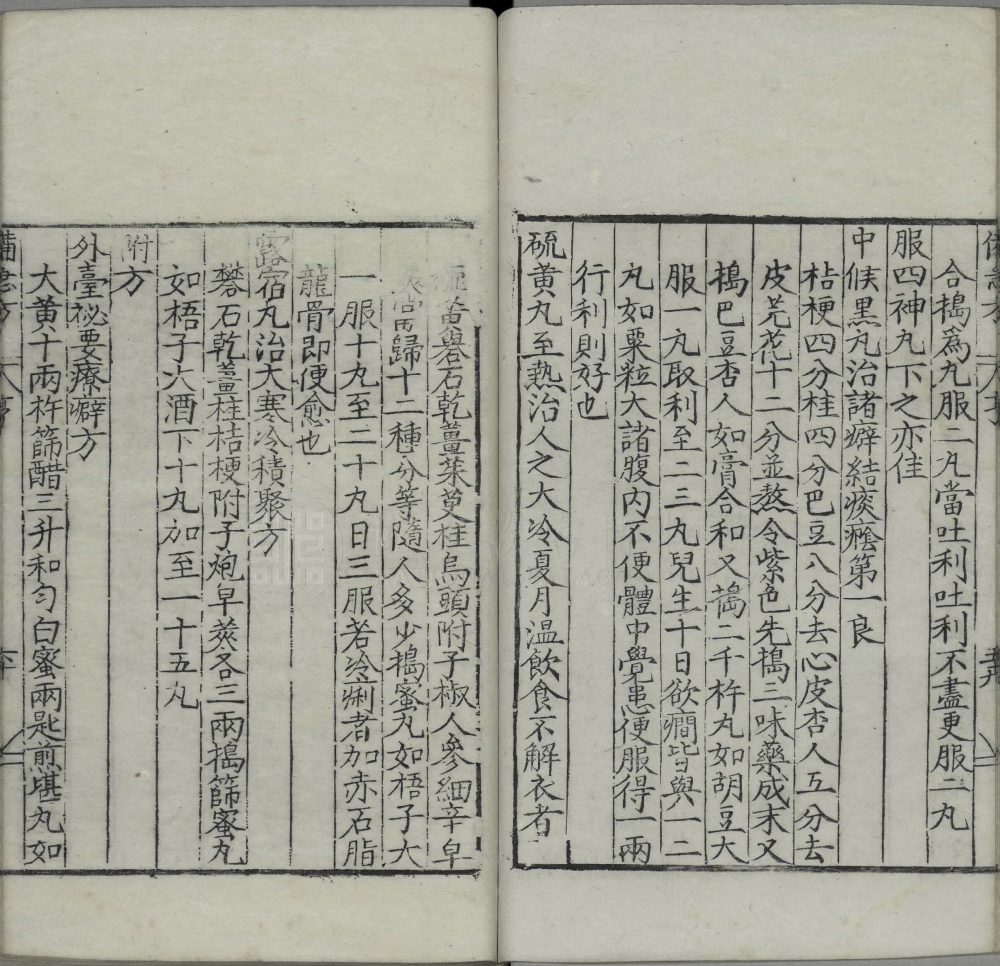 合搗爲丸服二丸當吐利吐利不盡更服二丸
服四神丸下之亦佳
中候黑丸治諸癖結痰癊第一良
桔梗四分桂四分巴豆八分去心皮杏人五分去
皮芫花十二分並熬令紫色先搗三味藥成末又
搗巴豆杏人如膏合和又搗二千杵丸如胡豆大
服一丸取利至二三丸兒生十日欲癇皆與一二
丸如粟粒大諸腹内不便體中覺患便服得一兩
行利則好也
硫黄丸至熱治人之大冷夏月温飲食不解衣者
黄礜石乾薑茱萸桂烏頭附子椒人參細辛皁
當歸十二種分等隨人多少搗蜜丸如梧子大
一服十丸至二十丸日三服若冷痢者加赤石脂
龍骨即便愈也
露宿丸治大寒冷積聚方
礬石乾薑桂桔梗附子炮皁莢各三兩搗篩蜜丸
如梧子大酒下十丸加至一十五丸
附方
外臺祕要療癖方
大黄十兩杵篩醋三升和匀白蜜兩匙煎堪丸如